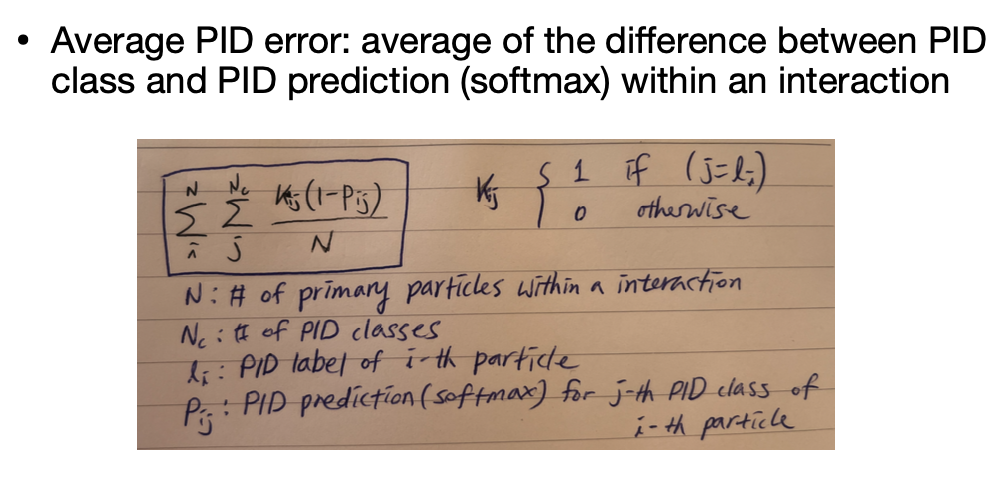 • Average PID error: average of the difference between PID
class and PID prediction (softmax) within an interaction
N Nc Kij(1-Pij)
Σ Σ
i j N
Kij { 1 if (j=li)
0 otherwise
N: # of primary particles within a interaction
Nc: # of PID classes
li: PID label of i-th particle
Pij: PID prediction (softmax) for j-th PID class of
i-th particle